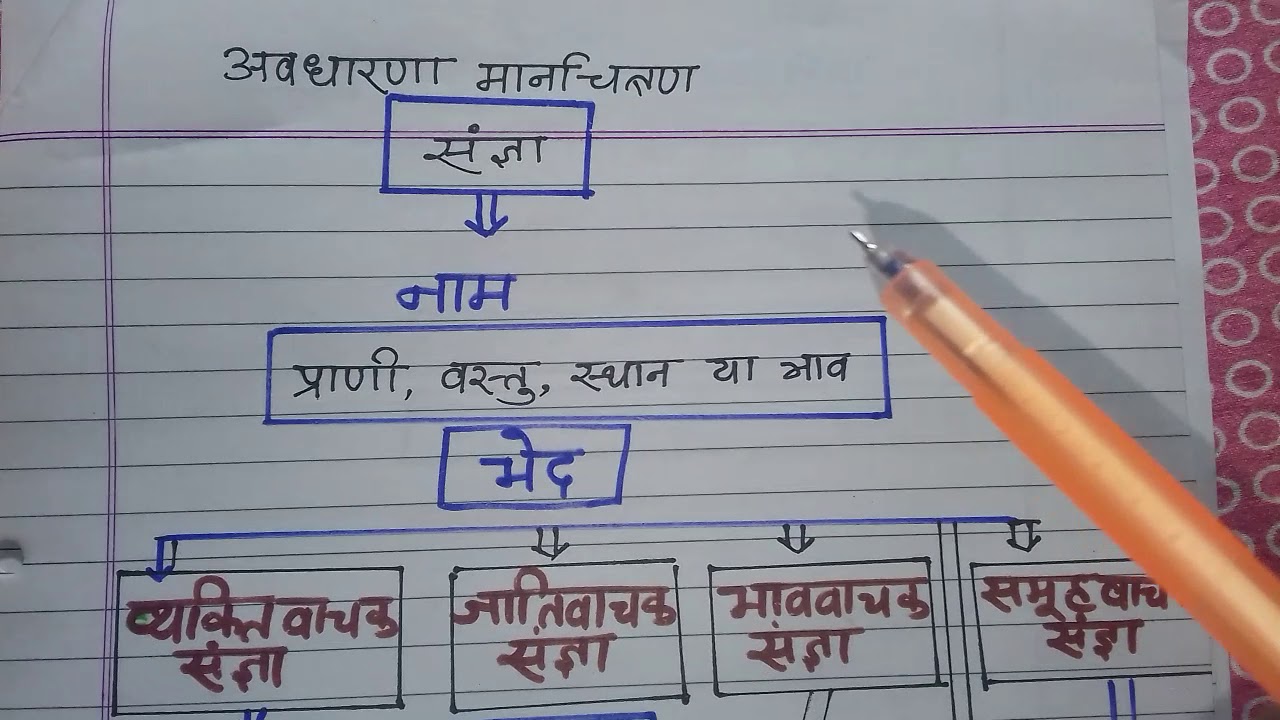 अवधारणा मानचित्रण
संज्ञा
नाम
प्राणी, वस्तु, स्थान या भाव
भेद
व्यक्तिवाचक
संज्ञा
जातिवाचक
संज्ञा
भाववाचक
संज्ञा
समूहवाच
संज्ञा